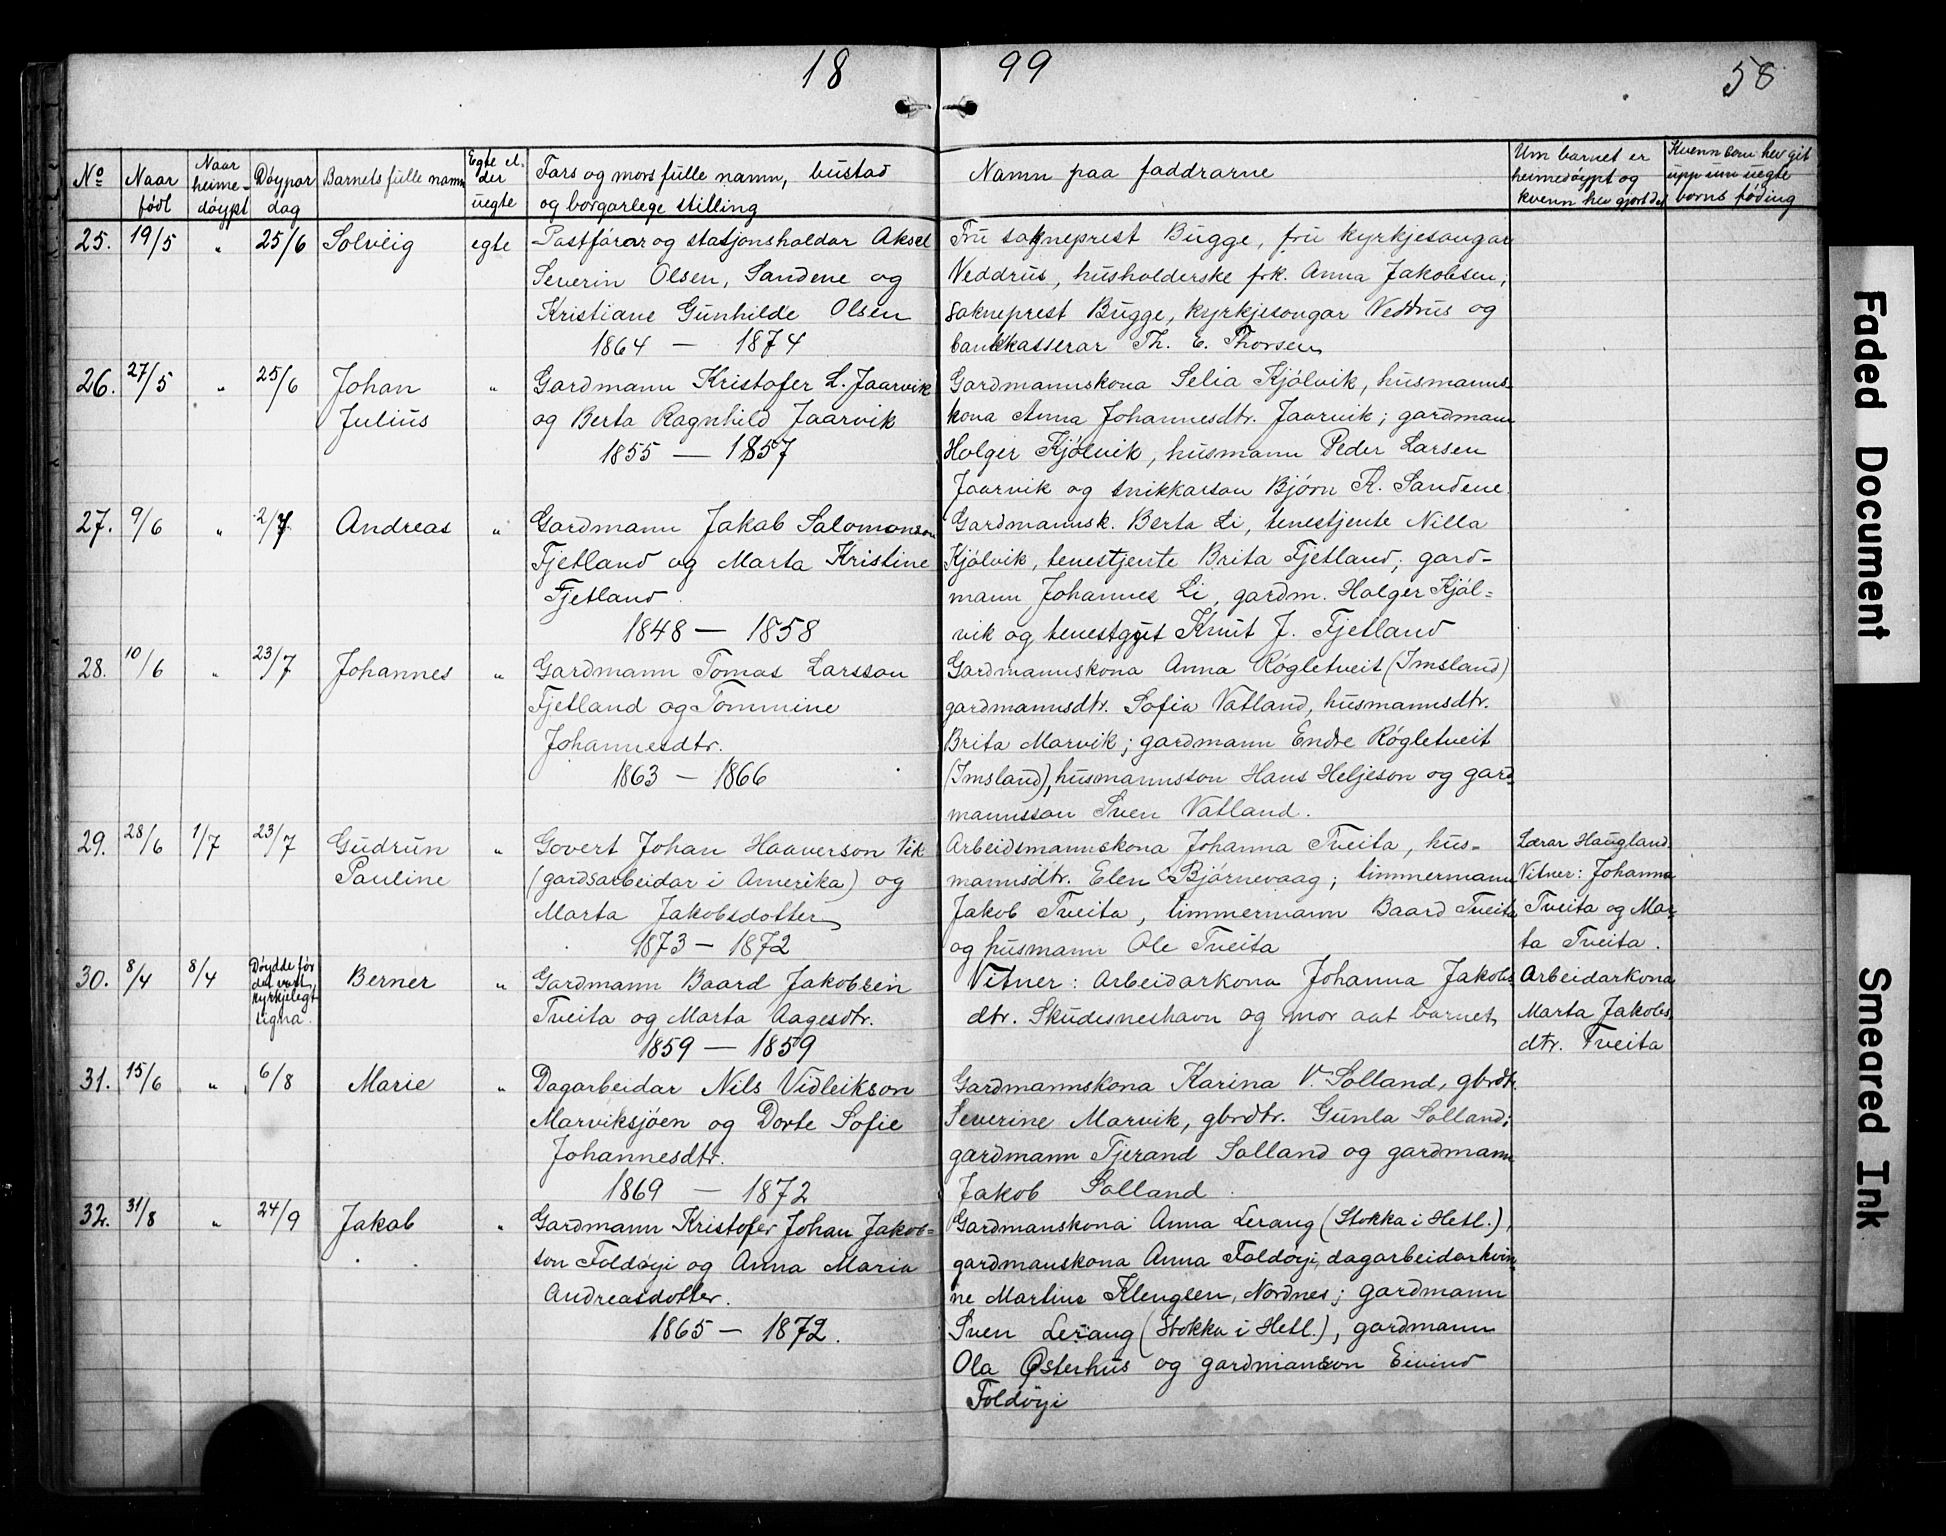 18 99 58
No Naar født Naar heime-døypt Døypardag Barnets fulle namn Egte el. der uegte Fars og mors fulle namn, bustad og borgarlege stilling Namn paa faddrarne Um barnet er heimedøypt og kvenn hev gjort det Kvenn som hev git upp um uegte borns føding
25. 19/5 " 25/6 Solveig egte Postførar og stasjonshaldar Aksel
Severin Olsen, Sandene og
Kristiane Gunhilde Olsen
1864 — 1874
Fru sokneprest Bugge, fru kyrkjesongar
Neddrus, husholderske frk. Anna Jakobsen,
sokneprest Bugge, kyrkjesongar Neddrus og
bankkasserar Th. E. Thorsen
26. 27/5 " 25/6 Johan Julius " Gardmann Kristofer L. Jaarvik
og Berta Ragnhild Jaarvik
1855 — 1857
Gardmannskona Selia Kjølvik, husmanns-
kona Anna Johannesdtr. Jaarvik; gardmann
Holger Kjølvik, husmann Peder Larsen
Jaarvik og snikkarson Bjørn K. Sandene
27. 9/6 " 2/7 Andreas " Gardmann Jakob Salomonson
Fjetland og Marta Kristine
Fjetland.
1848 — 1858
Gardmannsk. Berta Li, tenestjente Nilla
Kjølvik, tenestjente Brita Fjetland; gard-
mann Johannes Li, gardm. Holger Kjøl=
vik og tenestgut Knut J. Fjetland
28. 10/6 " 23/7 Johannes " Gardmann Tomas Larsson
Fjetland og Tommine
Johannesdtr.
1863 — 1866
Gardmannskona Anna Røgletveit (Imsland)
gardmannsdtr. Sofia Vatland, husmannsdtr.
Brita Marvik; gardmann Endre Røgletveit
(Imsland), husmannsson Hans Heljeson og gard-
mannsson Sven Vatland.
29. 28/6 1/7 23/7 Gudrun Pauline " Govert Johan Haaverson Vik
(gardsarbeidar i Amerika) og
Marta Jakobsdotter
1873 — 1872
Arbeidsmannskona Johanna Tveita, hus-
mannsdtr. Elen Bjørnevaag; timmermann
Jakob Tveita, timmermann Baard Tveita
og husmann Ole Tveita
Lærar Haugland.
Vitner: Johanna
Tveita og Mar-
ta Tveita.
30. 8/4 8/4 Døydde før det vart kyrkjelegt signa. Berner " Gardmann Baard Jakobsen
Tveita og Marta Aagesdtr.
1859 — 1859
Vitner: Arbeidarkona Johanna Jakobs
dtr. Skudesneshavn og mor aat barnet
Arbeidarkona
Marta Jakobs
dtr. Tveita
31. 15/6 " 6/8 Marie " Dagarbeidar Nils Vidleikson
Marviksjøen og Dorte Sofie
Johannesdtr.
1869 — 1872
Gardmannskona Karina V. Solland, gbrdtr.
Severine Marvik, gbrdtr. Gunla Solland;
gardmann Tjerand Solland og gardmann
Jakob Solland.
32. 31/8 " 24/9 Jakob " Gardmann Kristofer Johan Jakob=
son Foldøyi og Anna Maria
Andreasdotter.
1865 — 1872.
Gardmanskona Anna Lerang (Stokka i Hetl.),
gardmanskona Anna Foldøyi, dagarbeidarkvin-
ne Martine Klengsen, Nordnes; gardmann
Sven Lerang (Stokka i Hetl.), gardmann
Ola Østerhus og gardmanson Eivind
Foldøyi
Faded Document
Smeared Ink